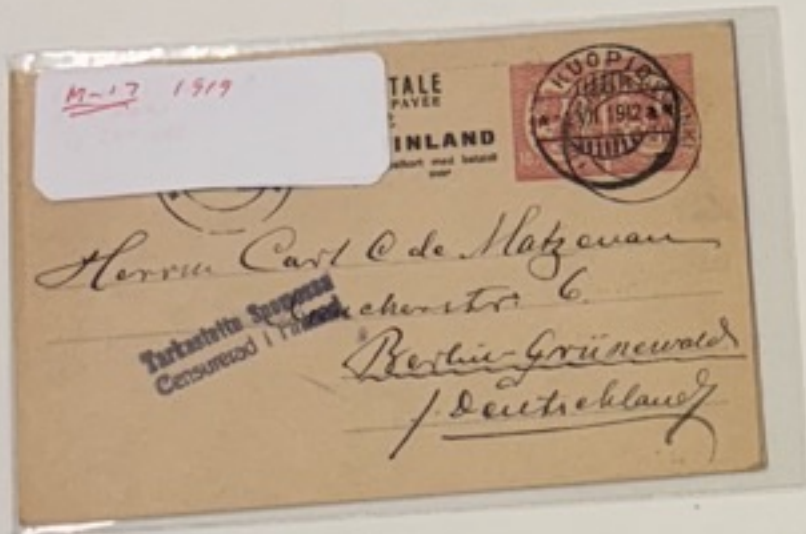 M-17 1919
TALE
PAYÉE
INLAND
med betaldt
svar
KUOPIO
VII 1912
Herrn Carl C de Matzenau
6.
Berlin-Grünewald
/ Deutschland
Tarkastettu Suomessa
Censurerad i Finland